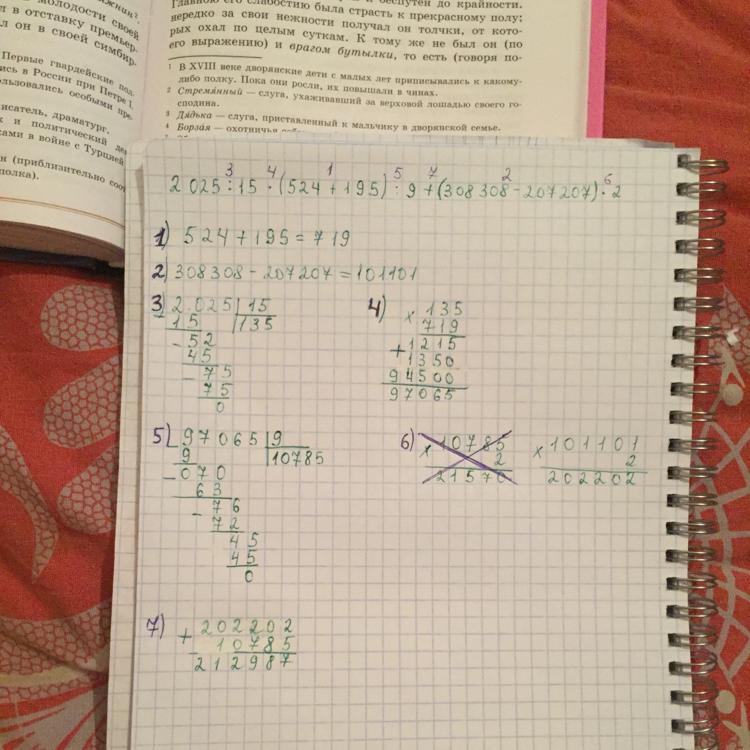 молодости своей
л в отставку премьер-
л он в своей симбир-
Первые гвардейские пол-
ись в России при Петре I,
ользовались особыми пре-
исатель, драматург.
к и политический дея
ками в войне с Турцией
н (приблизительно соот
полка).
и беспутен до крайности.
Главною его слабостию была страсть к прекрасному полу;
нередко за свои нежности получал он толчки, от кото-
рых охал по целым суткам. К тому же не был он (по
его выражению) и врагом бутылки, то есть (говоря по-
1 В XVIII веке дворянские дети с малых лет приписывались к какому-
либо полку. Пока они росли, их повышали в чинах.
2 Стремянный — слуга, ухаживавший за верховой лошадью своего го-
сподина.
3 Дядька — слуга, приставленный к мальчику в дворянской семье.
4 Борзая — охотничья
3 4 1 5 7 2 6
2 025 : 15 · (524 + 195) : 9 + (308 308 - 207 207) · 2
1) 524 + 195 = 719
2) 308308 - 207207 = 101101
3) 2.025 | 15
- 15 | 135
- 52
45
- 75
75
0
4) × 135
719
+ 1215
1350
94500
97065
5) - 97065 | 9
9 | 10785
- 070
63
- 76
72
45
45
0
6) × 10785
2
21570
× 101101
2
202202
7) + 202202
10785
212987